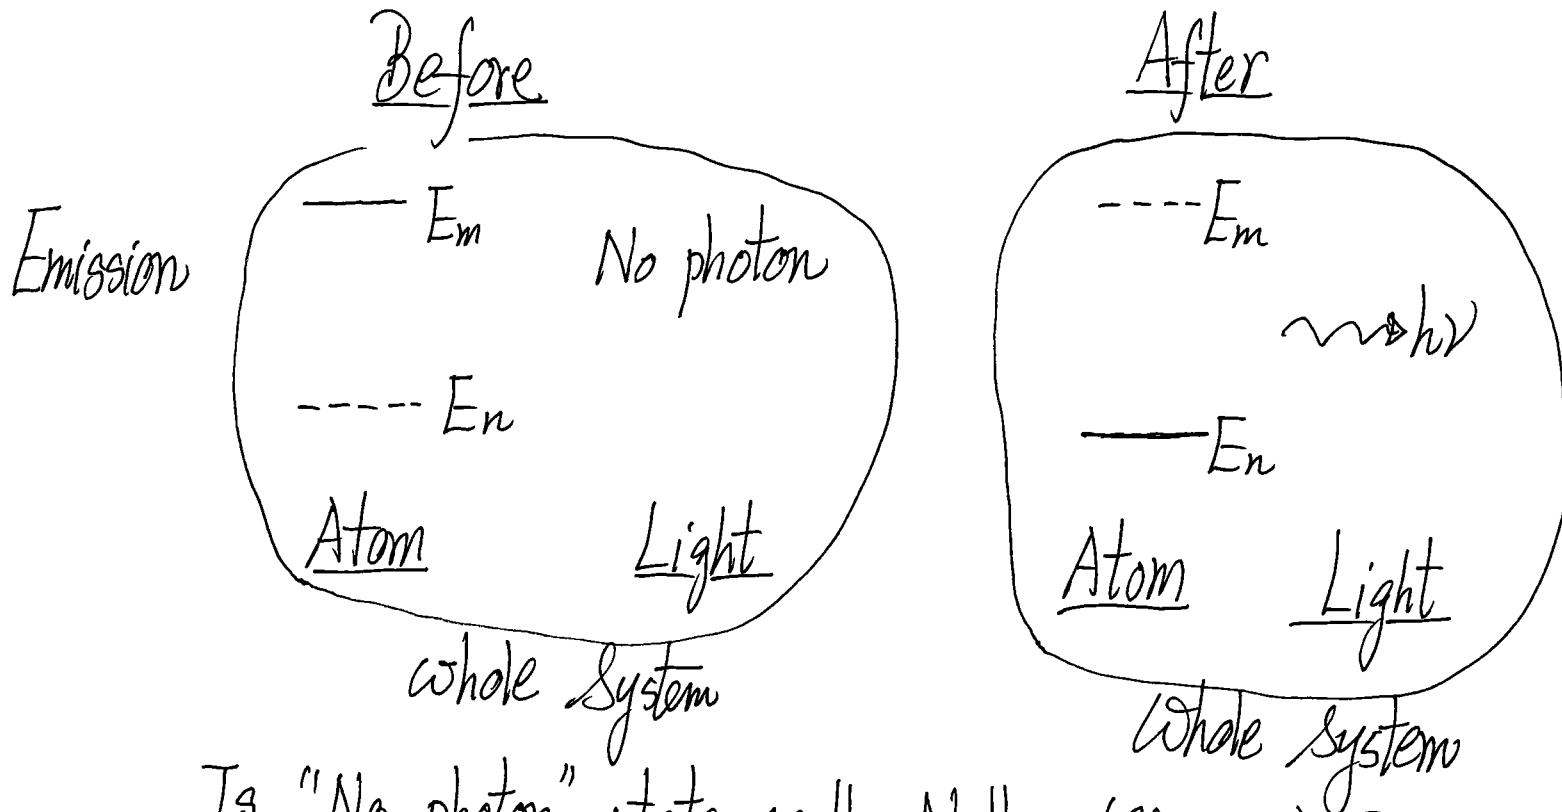 Before
After
Emission
Em
No photon
En
Atom
Light
Whole System
Em
hν
En
Atom
Light
Whole System
Is "No photon" state